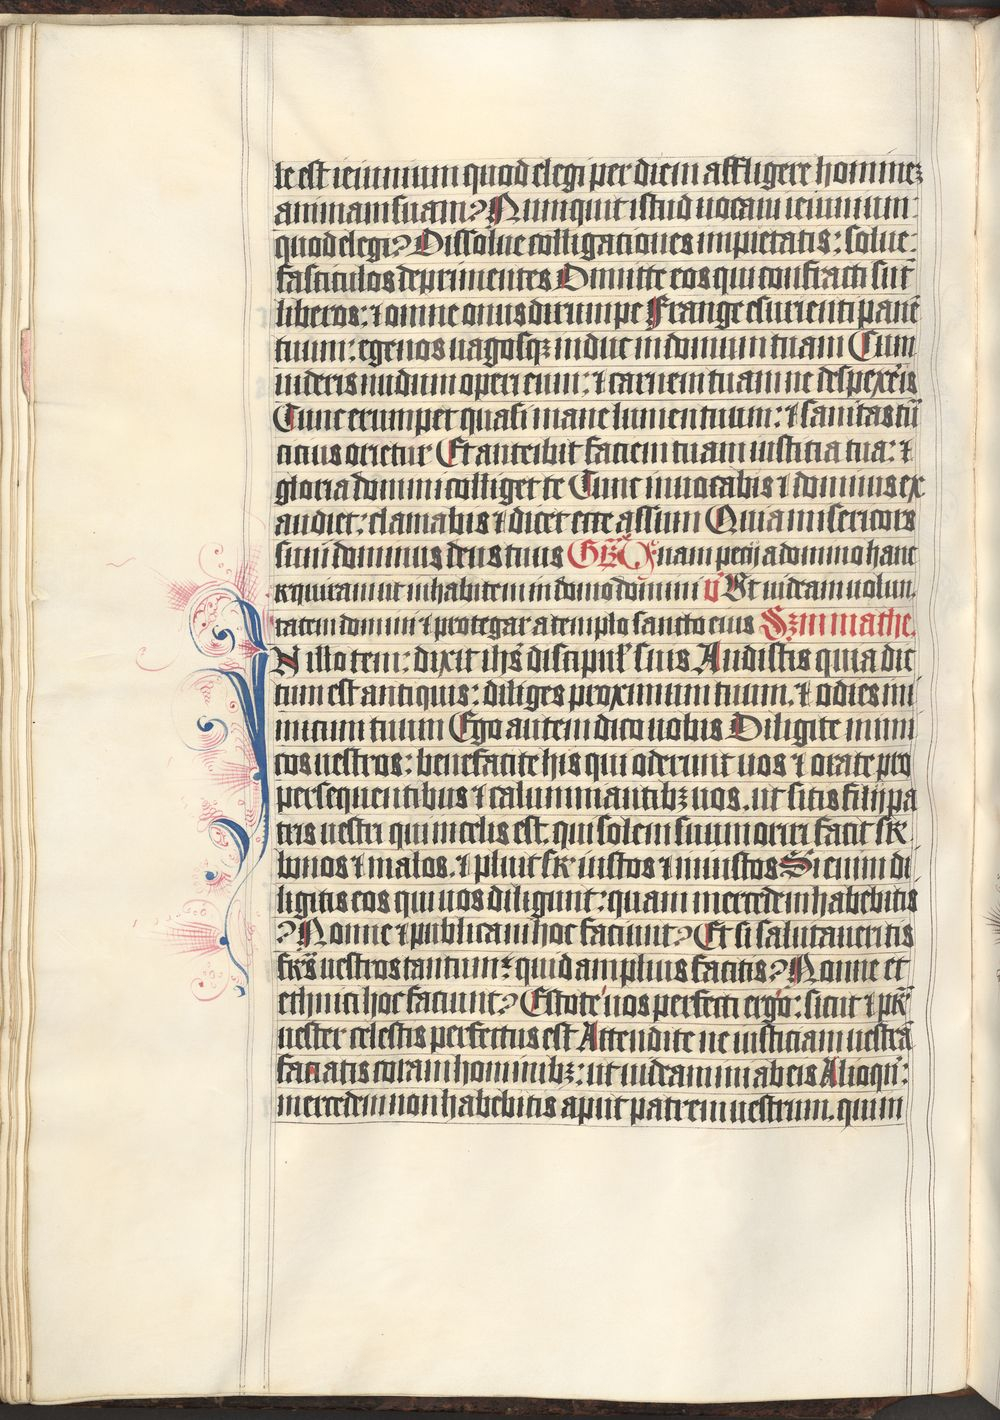 le est ieiunium quod elegi per diem affligere hominez
animam suam? Numquit istud uocaui ieiunium
quod elegi? Dissolue colligationes impietatis: solue
fasciculos deprimentes Dimitte eos qui confracti sūt
liberos: ⁊ omne onus dirumpe Frange esurienti panē
tuum: egenos uagosqꝫ induc in domum tuam Cum
uideris nudum operi eum: ⁊ carnem tuam ne despexeris
Tunc erumpet quasi mane lumen tuum: ⁊ sanitas tua
citius orietur Et anteibit faciem tuam iusticia tua: ⁊
gloria domini colliget te Tunc inuocabis ⁊ dominus ex
audiet: clamabis ⁊ dicet ecce assum Quia misericors
sum dominus deus tuus Grꝫ Unam pecij a domino hanc
requiram ut inhabitem in domo domini ℣ Ut uideam uolun
tatem domini ⁊ protegar a templo sancto eius Sꝫm mathe.
IN illo tem: dixit ihs̄ discipul' suis Audistis quia dic
tum est antiquis: diliges proximum tuum. ⁊ odies ini
micum tuum Ego autem dico uobis Diligite inimi
cos uestros: benefacite his qui oderunt uos ⁊ orate pro
persequentibus ⁊ calumniantibꝫ uos. ut sitis filij pa
tris uestri qui in celis est. qui solem suum oriri facit sr̄
bonos ⁊ malos. ⁊ pluit sr̄ iustos ⁊ iniustos Si enim di
ligitis eos qui uos diligunt: quam mercedem habebitis
? Nonne ⁊ publicani hoc faciunt? Et si salutaueritis
fr̄s uestros tantum: quid amplius facitis? Nonne et
ethnici hoc faciunt? Estote uos perfecti ergo: sicut ⁊ pr̄
uester celestis perfectus est Attendite ne iusticiam uestrā
faciatis coram hominibꝫ: ut uideamini ab eis Alioqn̄:
mercedem non habebitis aput patrem uestrum. qui in